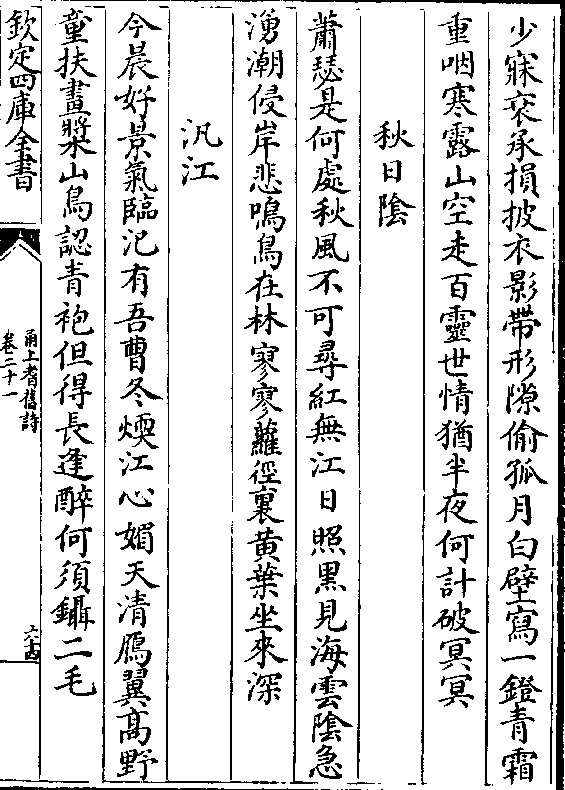 少寐衾承損披衣影帶形隙偷孤月白壁寫一鐙青霜
重咽寒露山空走百靈世情猶半夜何計破冥冥
秋日陰
蕭瑟是何處秋風不可尋紅無江日照黑見海雲陰急
湧潮侵岸悲鳴鳥在林寥寥蘿徑裏黃葉坐來深
汎江
今晨好景氣臨汜有吾曹冬煗江心媚天清鴈翼髙野
童扶畫槳山鳥認青袍但得長逢醉何須鑷二毛
欽定四庫全書
甬上耆舊詩
卷二十一
六十四